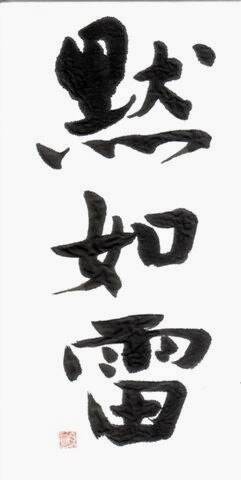 默如雷